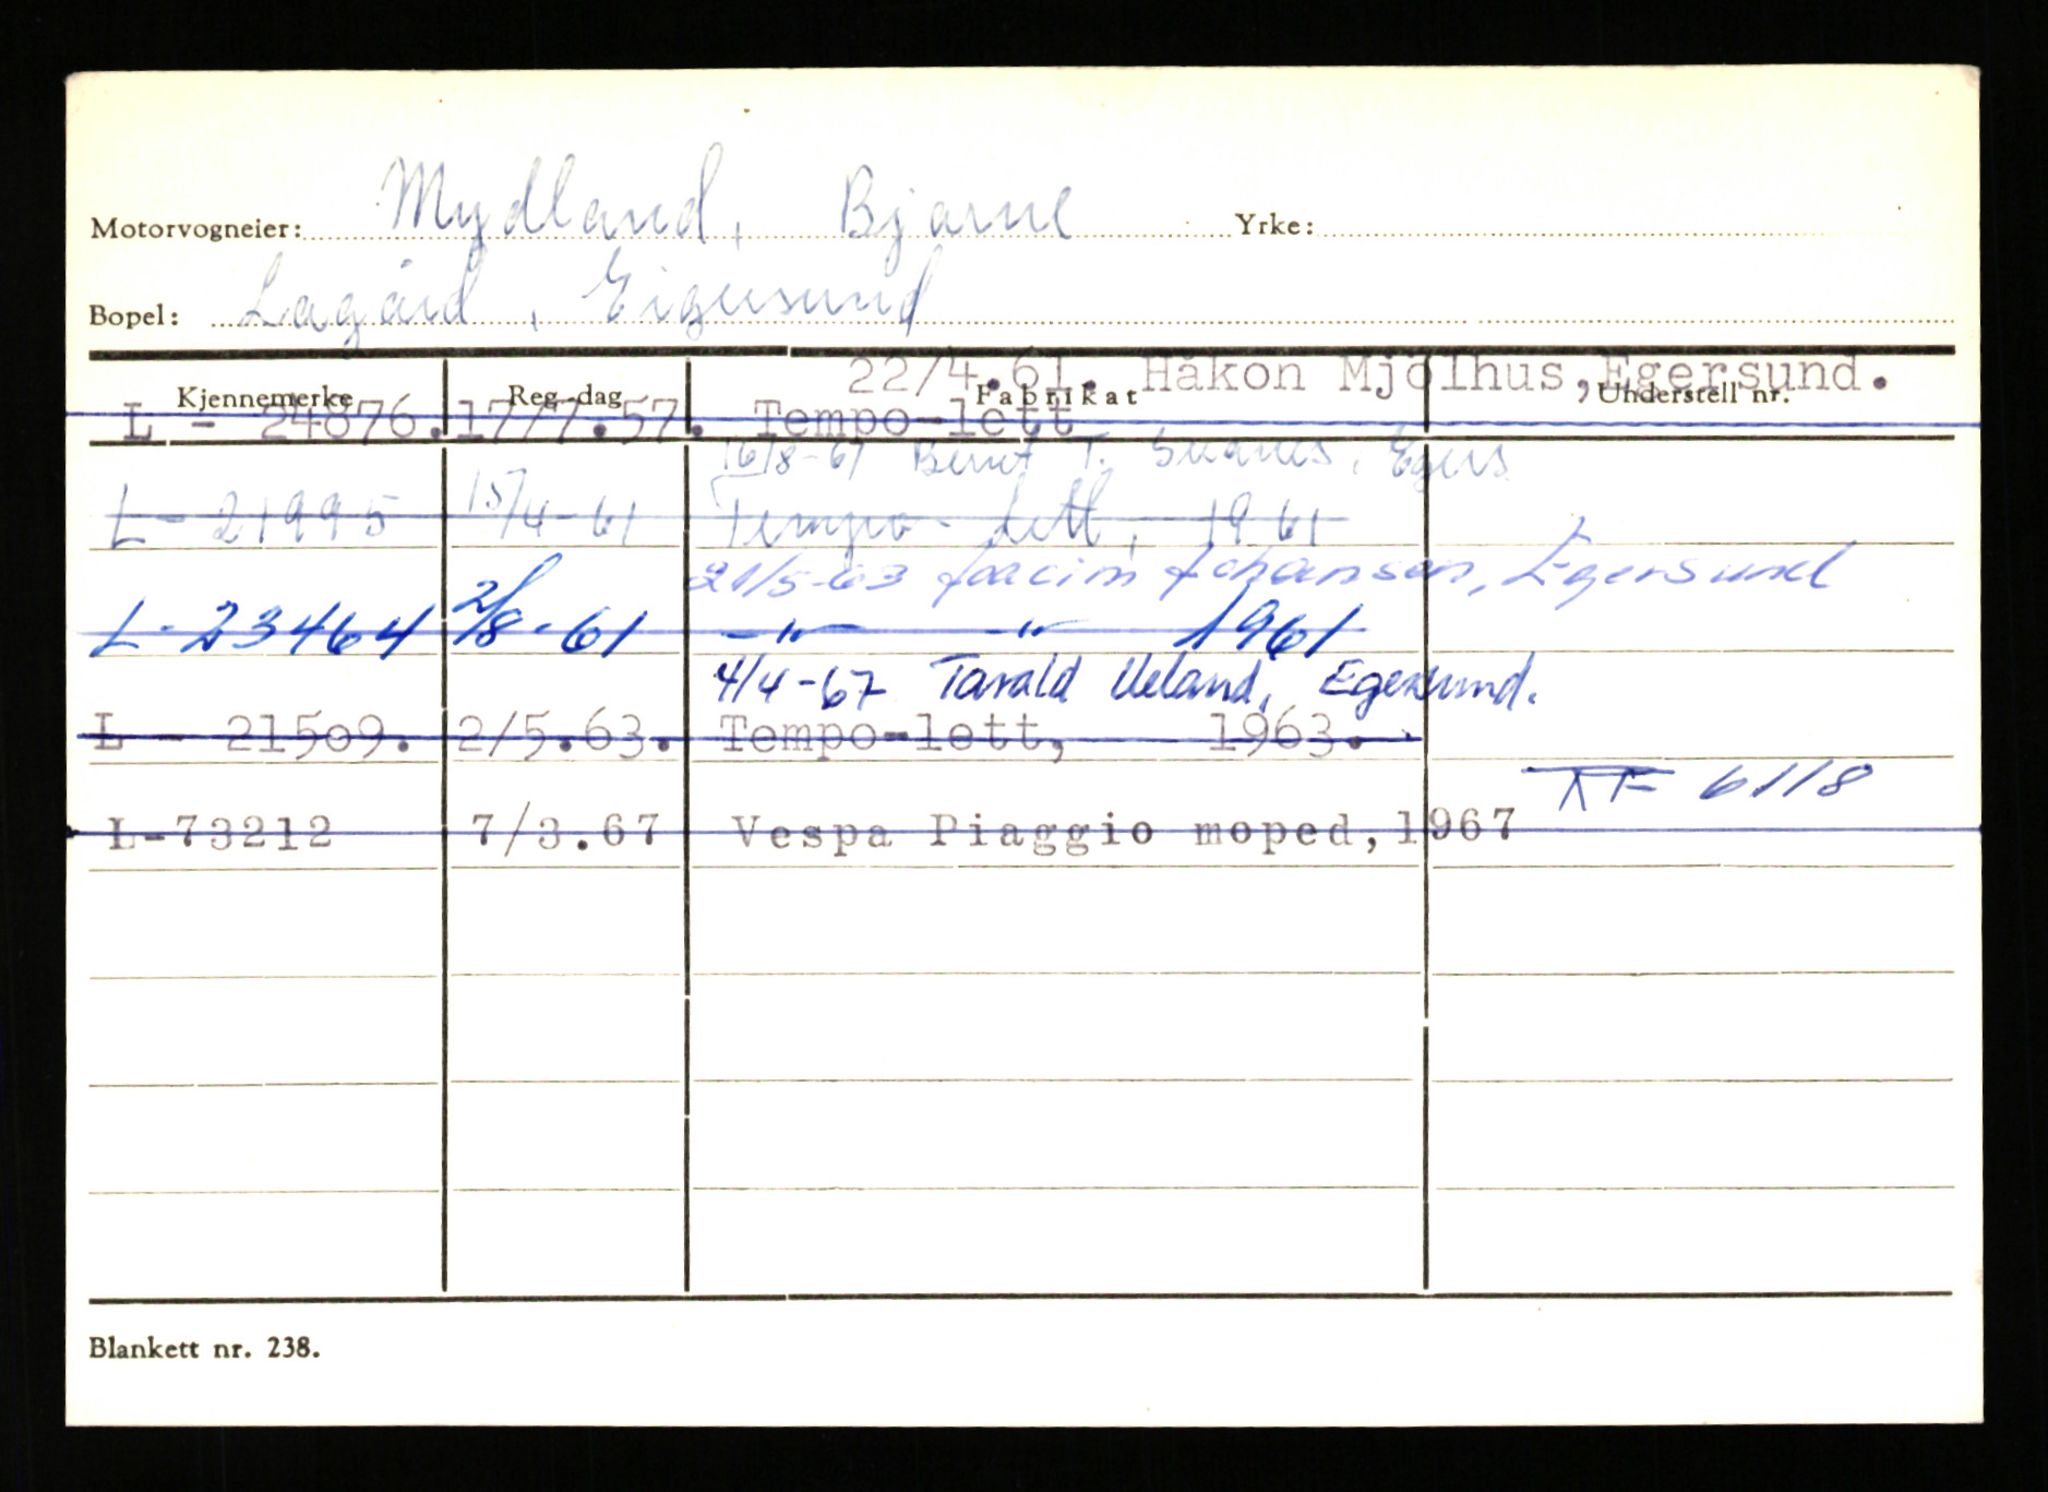 Motorvogneier: Mydland, Bjarne Yrke:
Bopel: Lagård, Eigersund
22/4.61. Håkon Mjölhus, Egersund.
Kjennemerke Reg.-dag Fabrikat Understell nr.
L - 24876. 17/7.57. Tempo-lett
16/8-61 Bernt T. Egers
L - 21995 15/4-61 Tempo-lett, 1961
21/5-63 Joacim Johansen, Egersund
L-23464 2/8-61 -"- -"- 1961
4/4-67 Tarald Ueland, Egersund.
L - 21509. 2/5.63. Tempo-lett, 1963.
6118
L-73212 7/3.67 Vespa Piaggio moped, 1967
Blankett nr. 238.